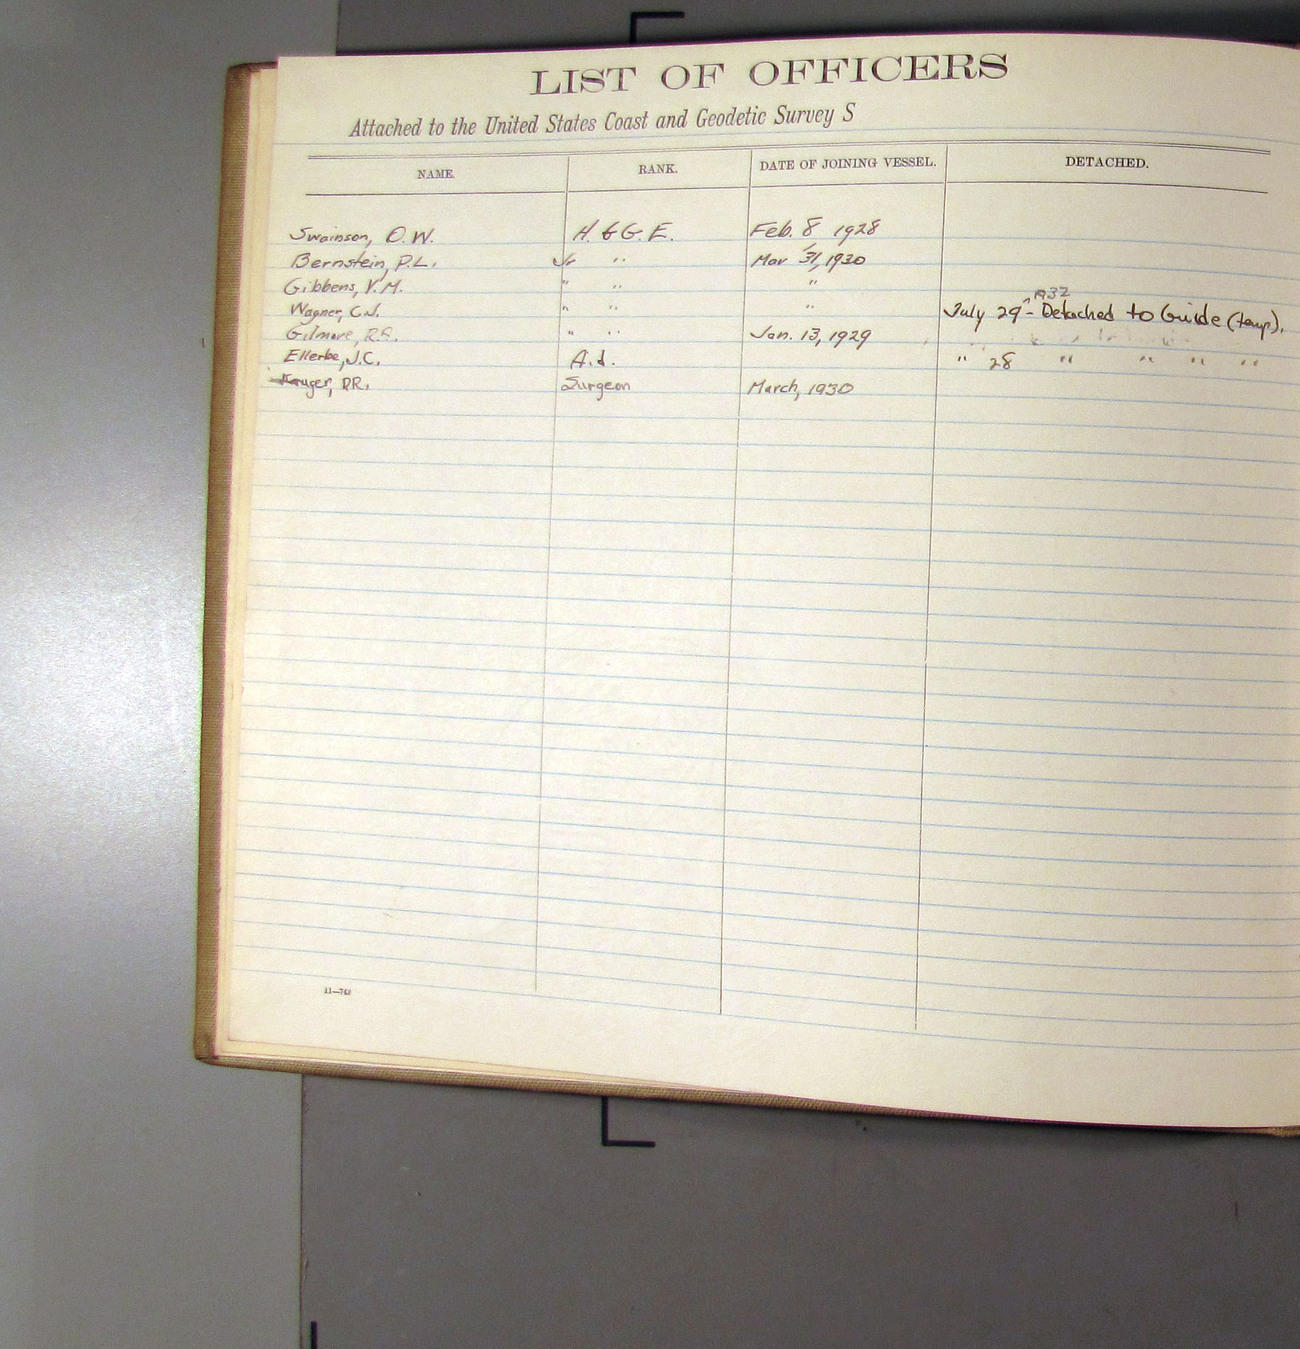 LIST OF OFFICERS
Attached to the United States Coast and Geodetic Survey S
NAME. RANK. DATE OF JOINING VESSEL. DETACHED.
Swainson, O. W. H. & G. E. Feb. 8 1928
Bernstein, P. L. Jr " Mar 31, 1930
Gibbens, V. M. " " "
Wagner, C. J. " " " July 29 - 1932 Detached to Guide (temp).
Gilmore, R. S. " " Jan. 13, 1929
Ellerbe, J. C. A. d. " 28 " " " "
Kruger, RR. Surgeon March, 1930
11—742